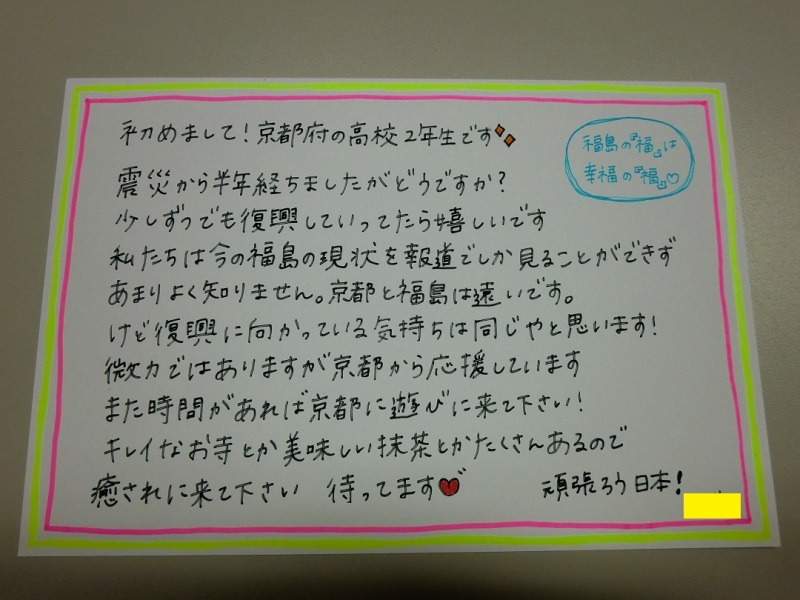 初めまして!京都府の高校2年生です
福島の『福』は
幸福の『福』♡
震災から半年経ちましたがどうですか?
少しずつでも復興していってたら嬉しいです
私たちは今の福島の現状を報道でしか見ることができず
あまりよく知りません。京都と福島は遠いです。
けど復興に向かっている気持ちは同じやと思います!
微力ではありますが京都から応援しています
また時間があれば京都に遊びに来て下さい!
キレイなお寺とか美味しい抹茶とかたくさんあるので
癒されに来て下さい 待ってます♥
頑張ろう日本!